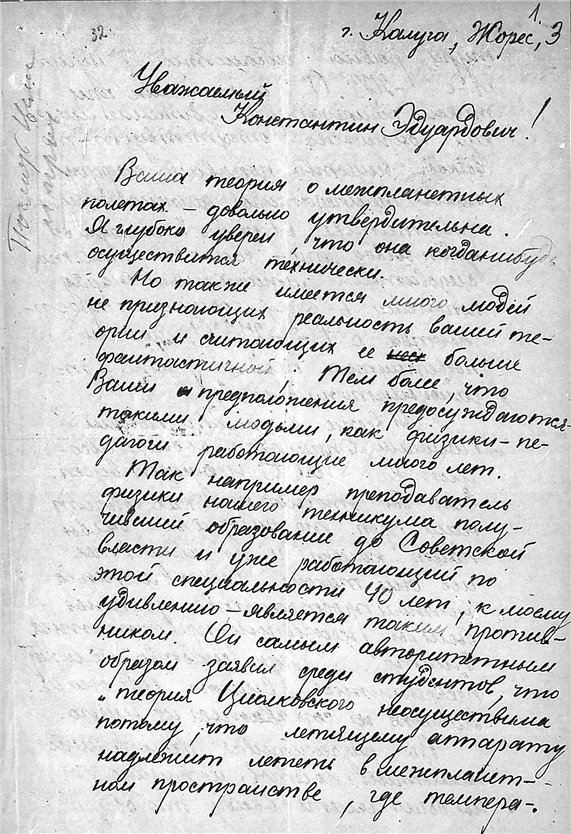 1.
32
г. Калуга, Жорес, 3
Уважаемый
Константин Эдуардович!
Ваша теория о межпланетных
полетах – довольно утвердительна.
Я глубоко уверен, что она когданибудь
осуществится технически.
Но также имеется много людей
не признающих реальность вашей те-
ории и считающих ее больше
фантастичной. Тем более, что
Ваши предположения предосуждаются
такими людьми, как физики-пе-
дагоги работающие много лет.
Так например преподаватель
физики нашего техникума полу-
чивший образование до Советской
власти и уже работающий по
этой специальности 40 лет, к моему
удивлению – является таким против-
ником. Он самым авторитетным
образом заявил среди студентов, что
„теория Циолковского неосуществима
потому, что летящему аппарату
надлежит лететь в межпланет-
ном пространстве, где темпера-